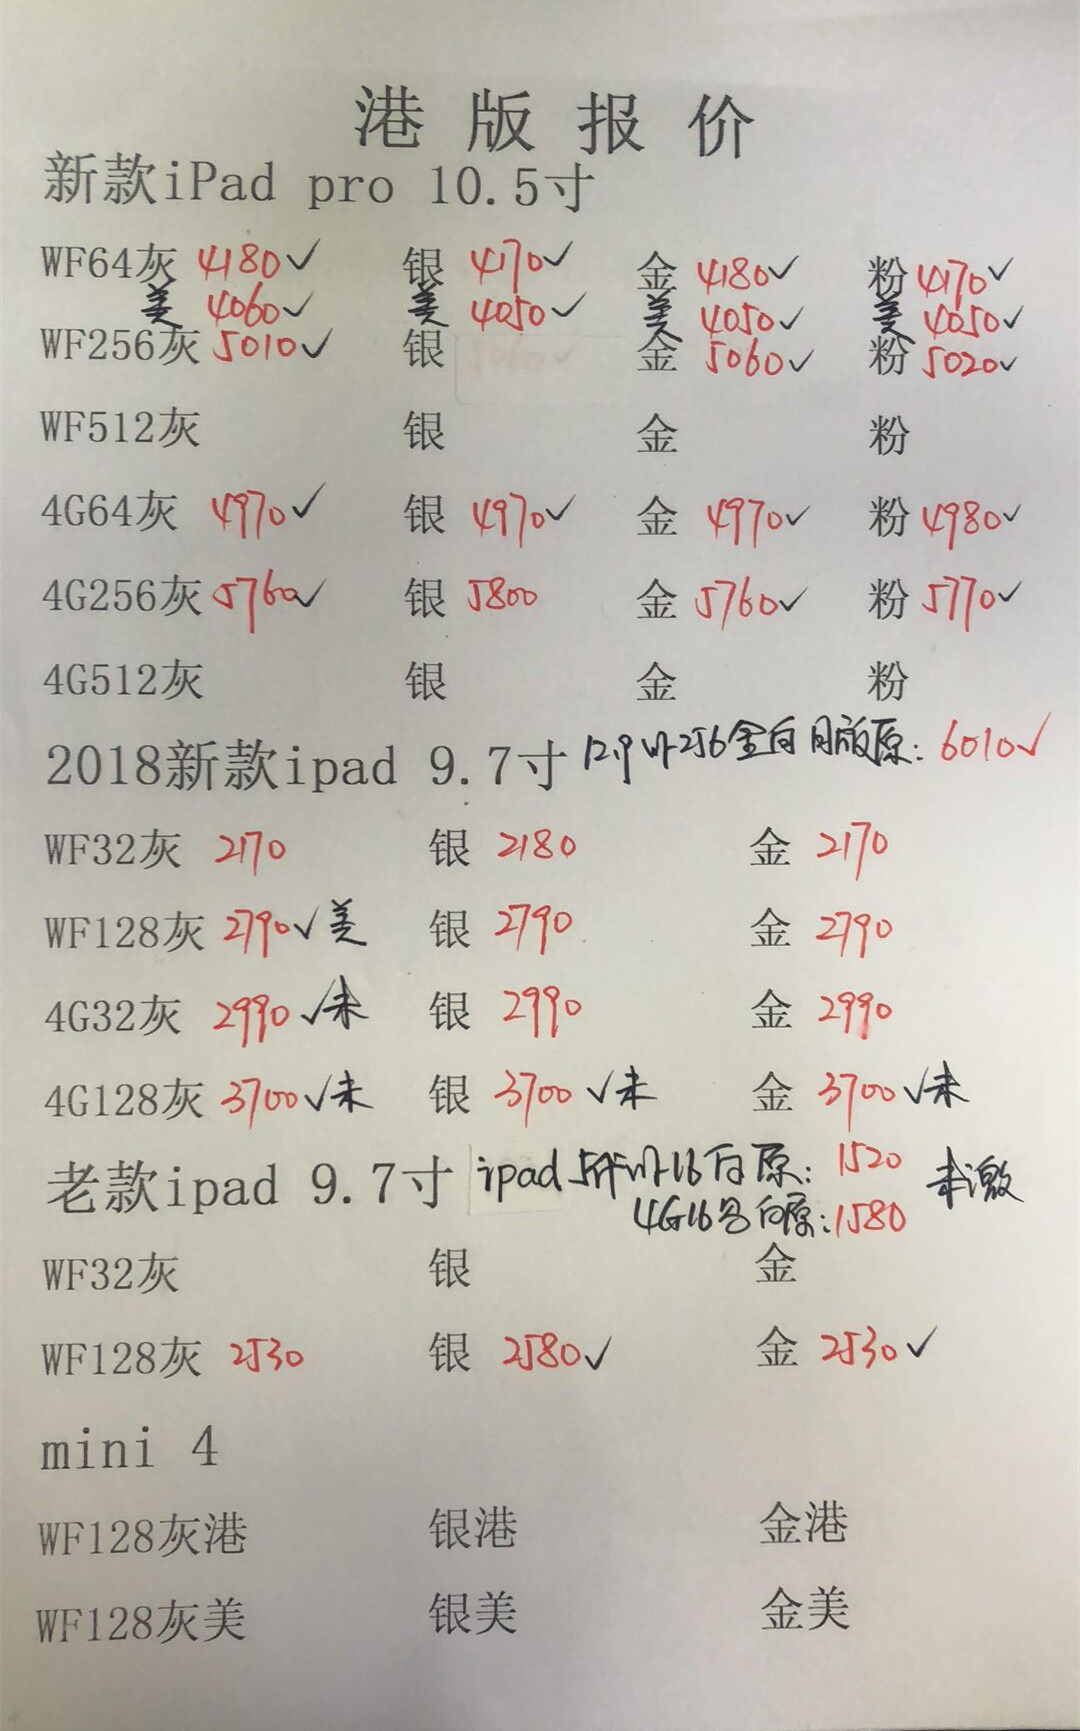 港版报价
新款iPad pro 10.5寸
WF64灰 4180✓ 银 4170✓ 金 4180✓ 粉 4170✓
美 4060✓ 美 4050✓ 美 4050✓ 美 4050✓
WF256灰 5010✓ 银 金 5060✓ 粉 5020✓
WF512灰 银 金 粉
4G64灰 4970✓ 银 4970✓ 金 4970✓ 粉 4980✓
4G256灰 5760✓ 银 5800 金 5760✓ 粉 5770✓
4G512灰 银 金 粉
2018新款ipad 9.7寸 12.9 256金白 原: 6010✓
WF32灰 2170 银 2180 金 2170
WF128灰 2790✓美 银 2790 金 2790
4G32灰 2990✓未 银 2990 金 2990
4G128灰 3700✓未 银 3700✓未 金 3700✓未
老款ipad 9.7寸 ipad 16白原: 1520 未激
4G16 白原: 1580
WF32灰 银 金
WF128灰 2530 银 2580✓ 金 2530✓
mini 4
WF128灰港 银港 金港
WF128灰美 银美 金美